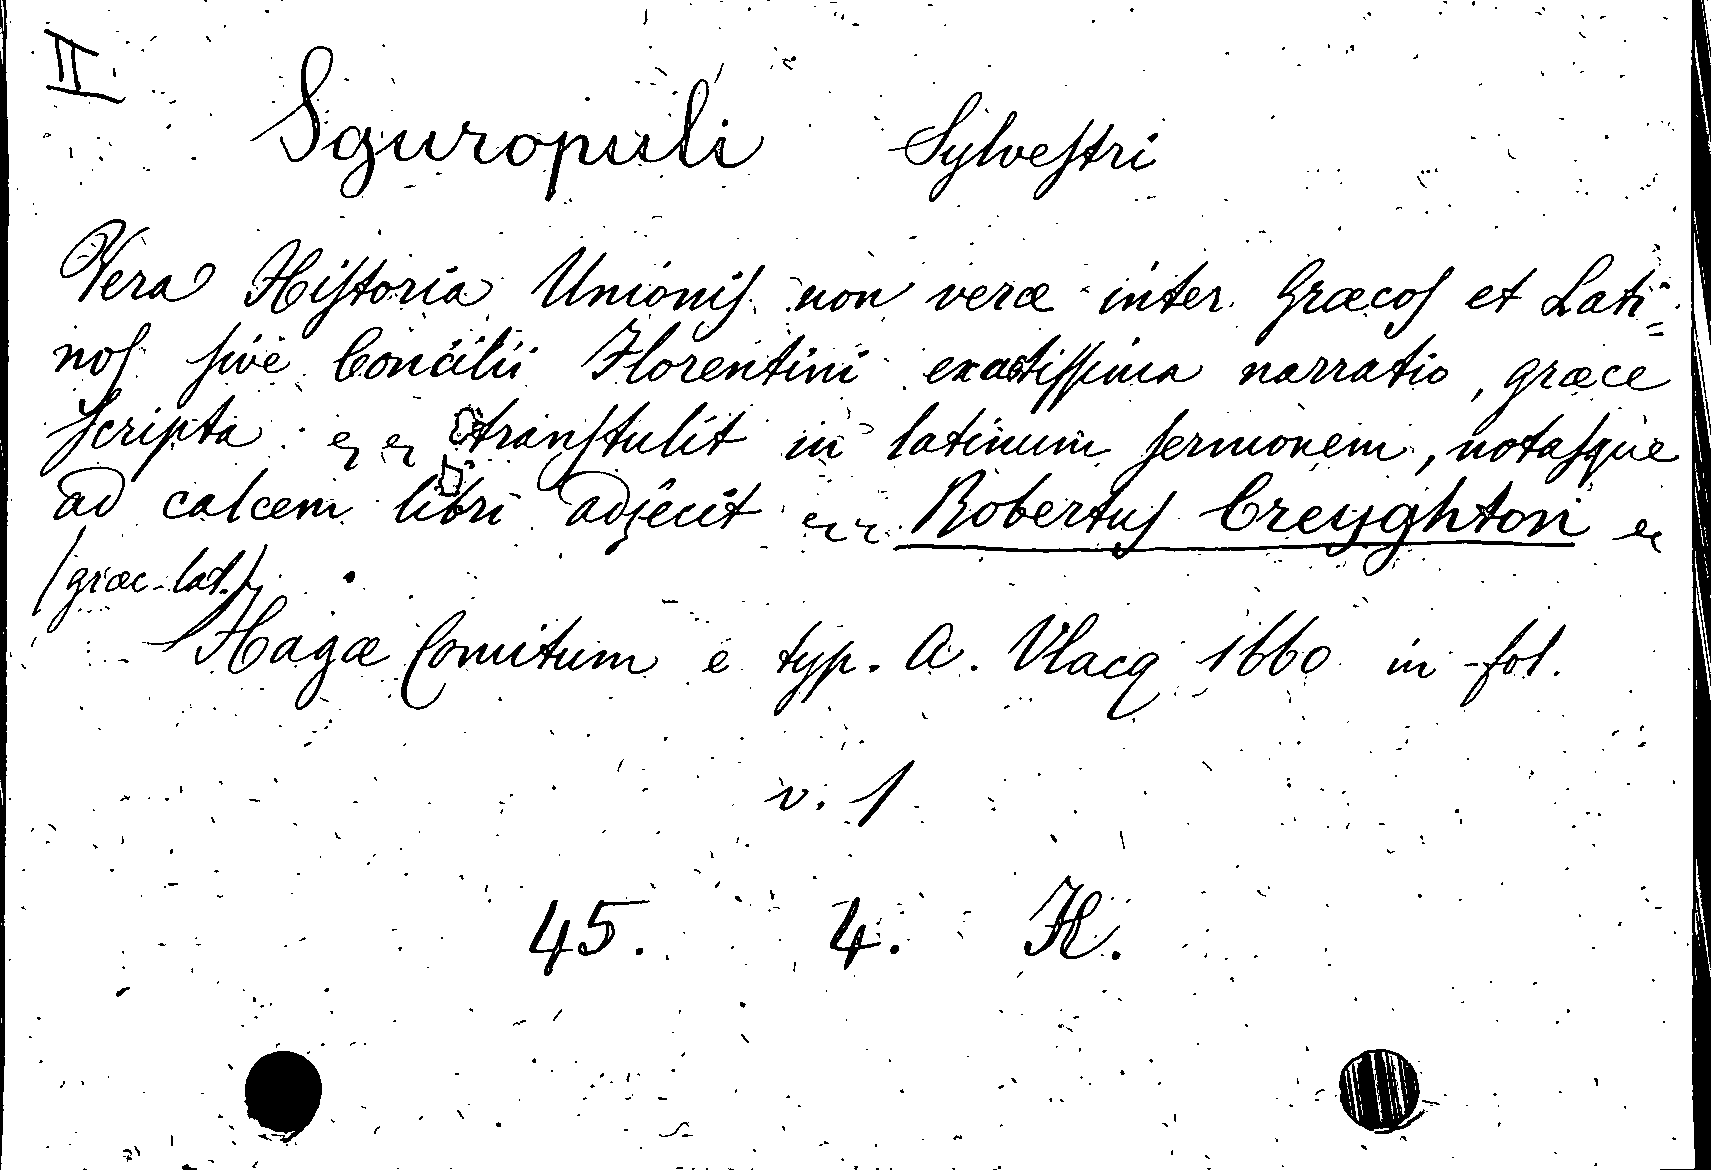 II.
Sguropuli Sylvestri
Vera Historia Unionis non veræ inter Græcos et Lati=
nos sive Concilii Florentini exactissima narratio, græce
scripta: transtulit in latinum sermonem, notasque
ad calcem libri adjecit Robertus Creyghton
(græc-lat.)
Hagæ Comitum e typ. A. Vlacq 1660 in-fol.
v. 1
45. 4. H.